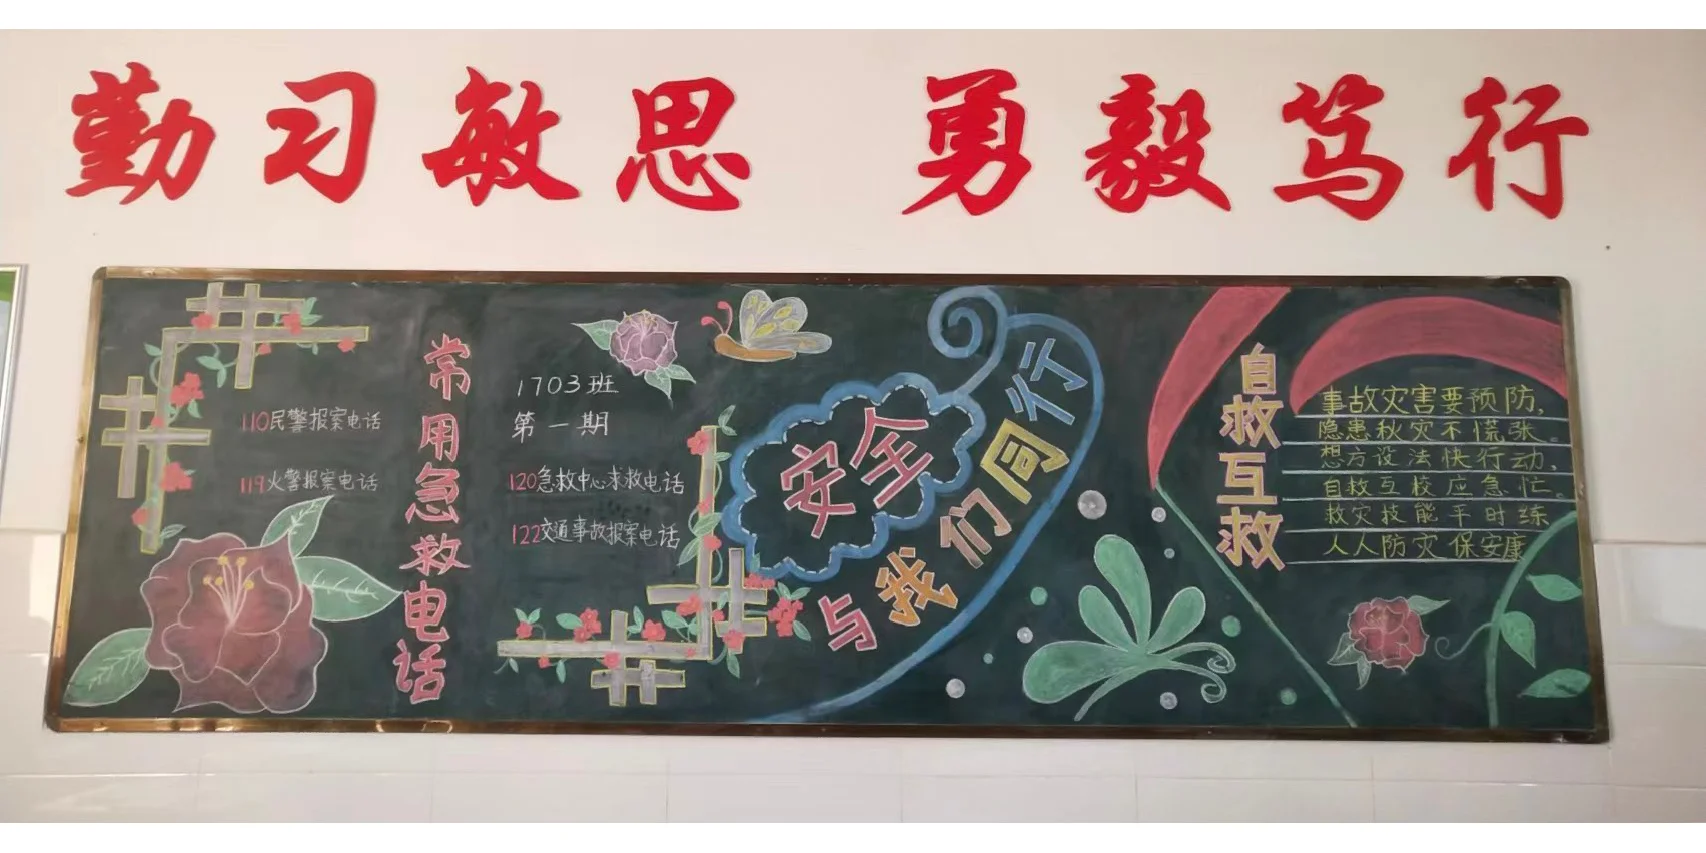 勤习敏思 勇毅笃行
110民警报案电话
119火警报案电话
常用急救电话
1703班
第一期
120急救中心求救电话
122交通事故报案电话
安全
与我们同行
自救互救
事故灾害要预防，
隐患秋灾不慌张。
想方设法快行动，
自救互校应急忙。
救灾技能平时练
人人防灾保安康